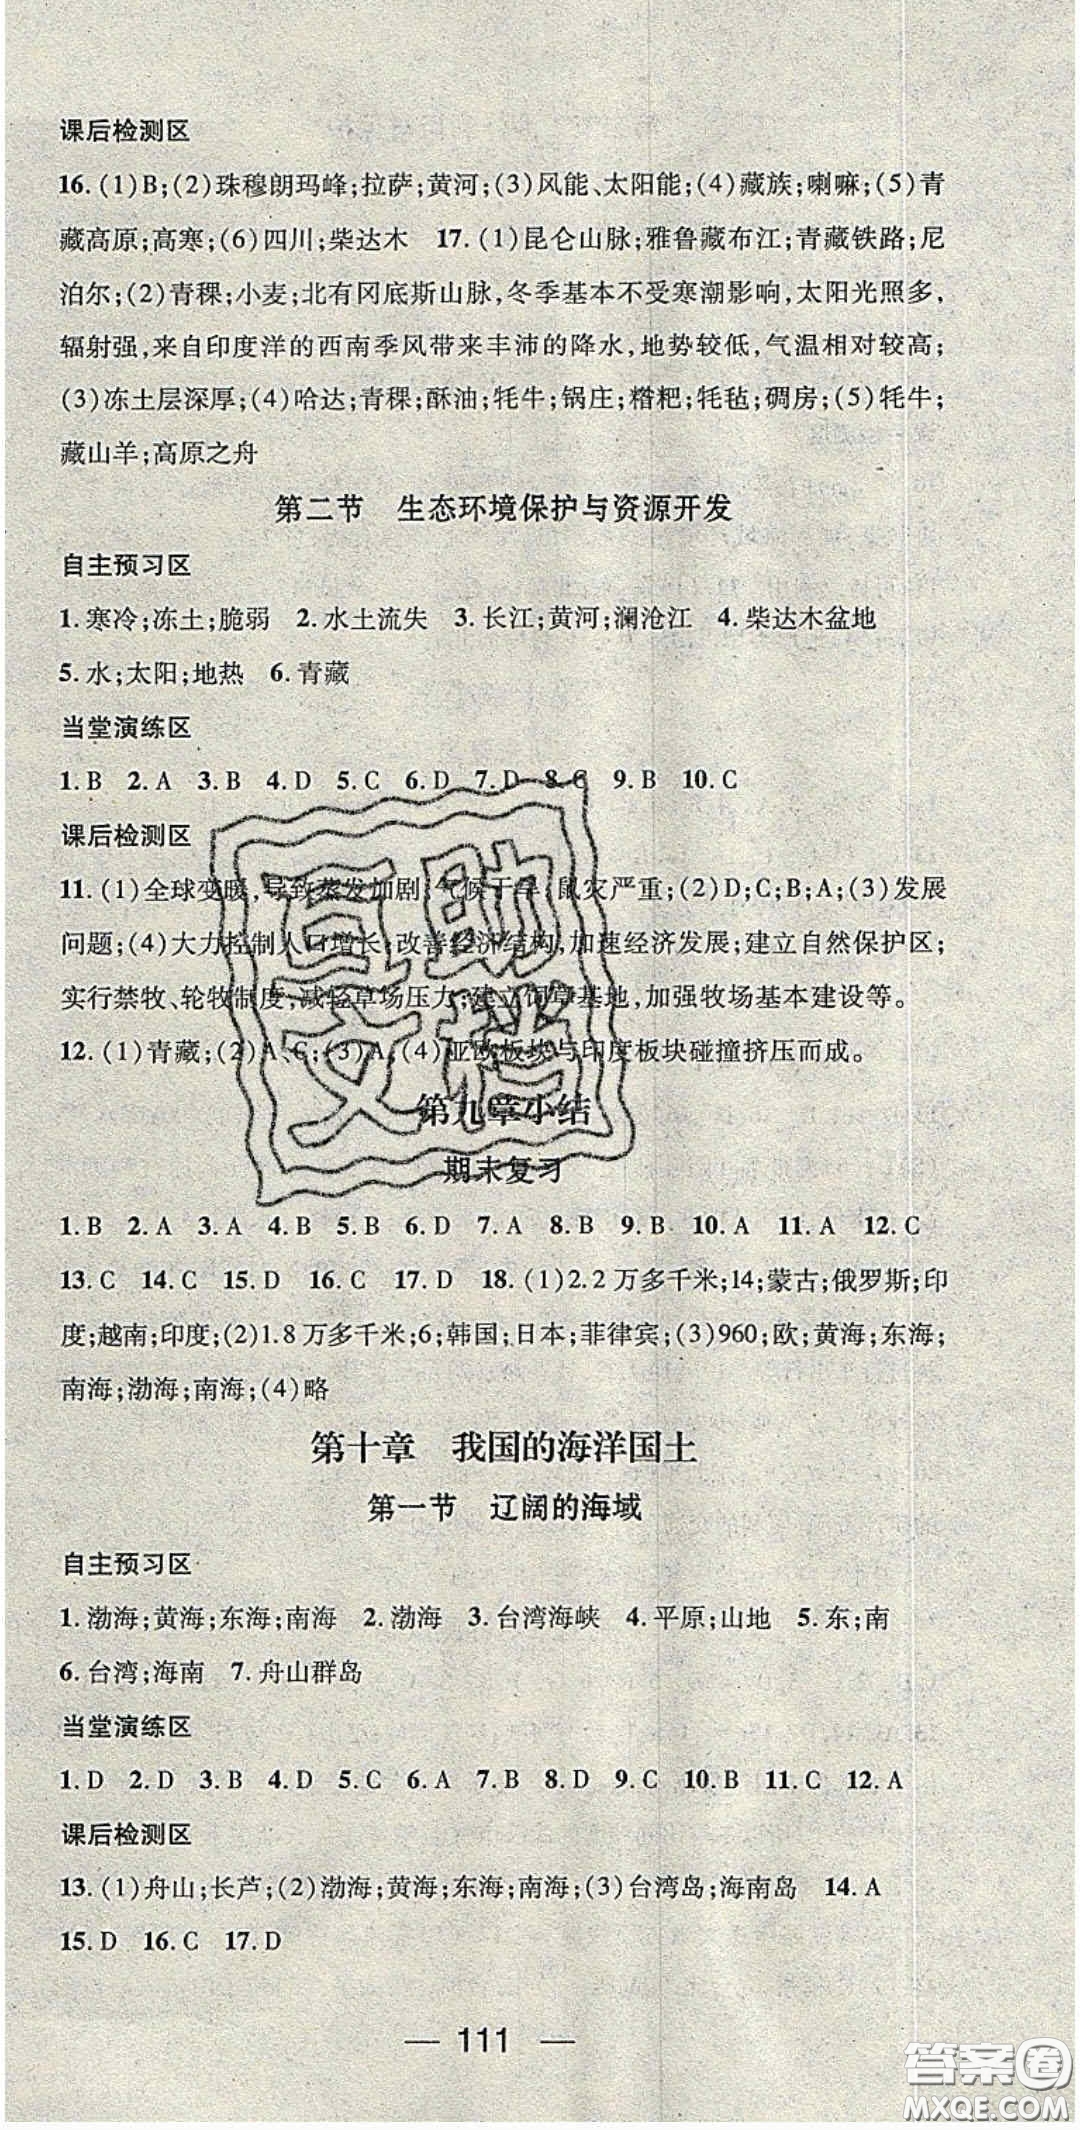 课后检测区
16.(1)B;(2)珠穆朗玛峰;拉萨;黄河;(3)风能、太阳能;(4)藏族;喇嘛;(5)青
藏高原;高寒;(6)四川;柴达木 17.(1)昆仑山脉;雅鲁藏布江;青藏铁路;尼
泊尔;(2)青稞;小麦;北有冈底斯山脉,冬季基本不受寒潮影响,太阳光照多,
辐射强,来自印度洋的西南季风带来丰沛的降水,地势较低,气温相对较高;
(3)冻土层深厚;(4)哈达;青稞;酥油;牦牛;锅庄;糌粑;牦毡;碉房;(5)牦牛;
藏山羊;高原之舟
第二节 生态环境保护与资源开发
自主预习区
1.寒冷;冻土;脆弱 2.水土流失 3.长江;黄河;澜沧江 4.柴达木盆地
5.水;太阳;地热 6.青藏
当堂演练区
1.B 2.A 3.B 4.D 5.C 6.D 7.D 8.C 9.B 10.C
课后检测区
11.(1)全球变暖,导致蒸发加剧;气候干旱;鼠灾严重;(2)D;C;B;A;(3)发展
问题;(4)大力控制人口增长;改善经济结构,加速经济发展;建立自然保护区;
实行禁牧、轮牧制度;减轻草场压力;建立饲草基地,加强牧场基本建设等。
12.(1)青藏;(2)A、C;(3)A;(4)亚欧板块与印度板块碰撞挤压而成。
第九章小结
期末复习
1.B 2.A 3.A 4.B 5.B 6.D 7.A 8.B 9.B 10.A 11.A 12.C
13.C 14.C 15.D 16.C 17.D 18.(1)2.2万多千米;14;蒙古;俄罗斯;印
度;越南;印度;(2)1.8万多千米;6;韩国;日本;菲律宾;(3)960;欧;黄海;东海;
南海;渤海;南海;(4)略
第十章 我国的海洋国土
第一节 辽阔的海域
自主预习区
1.渤海;黄海;东海;南海 2.渤海 3.台湾海峡 4.平原;山地 5.东;南
6.台湾;海南 7.舟山群岛
当堂演练区
1.D 2.D 3.B 4.D 5.C 6.A 7.B 8.D 9.C 10.B 11.C 12.A
课后检测区
13.(1)舟山;长芦;(2)渤海;黄海;东海;南海;(3)台湾岛;海南岛 14.A
15.D 16.C 17.D
— 111 —
答案圈
MXQE.COM